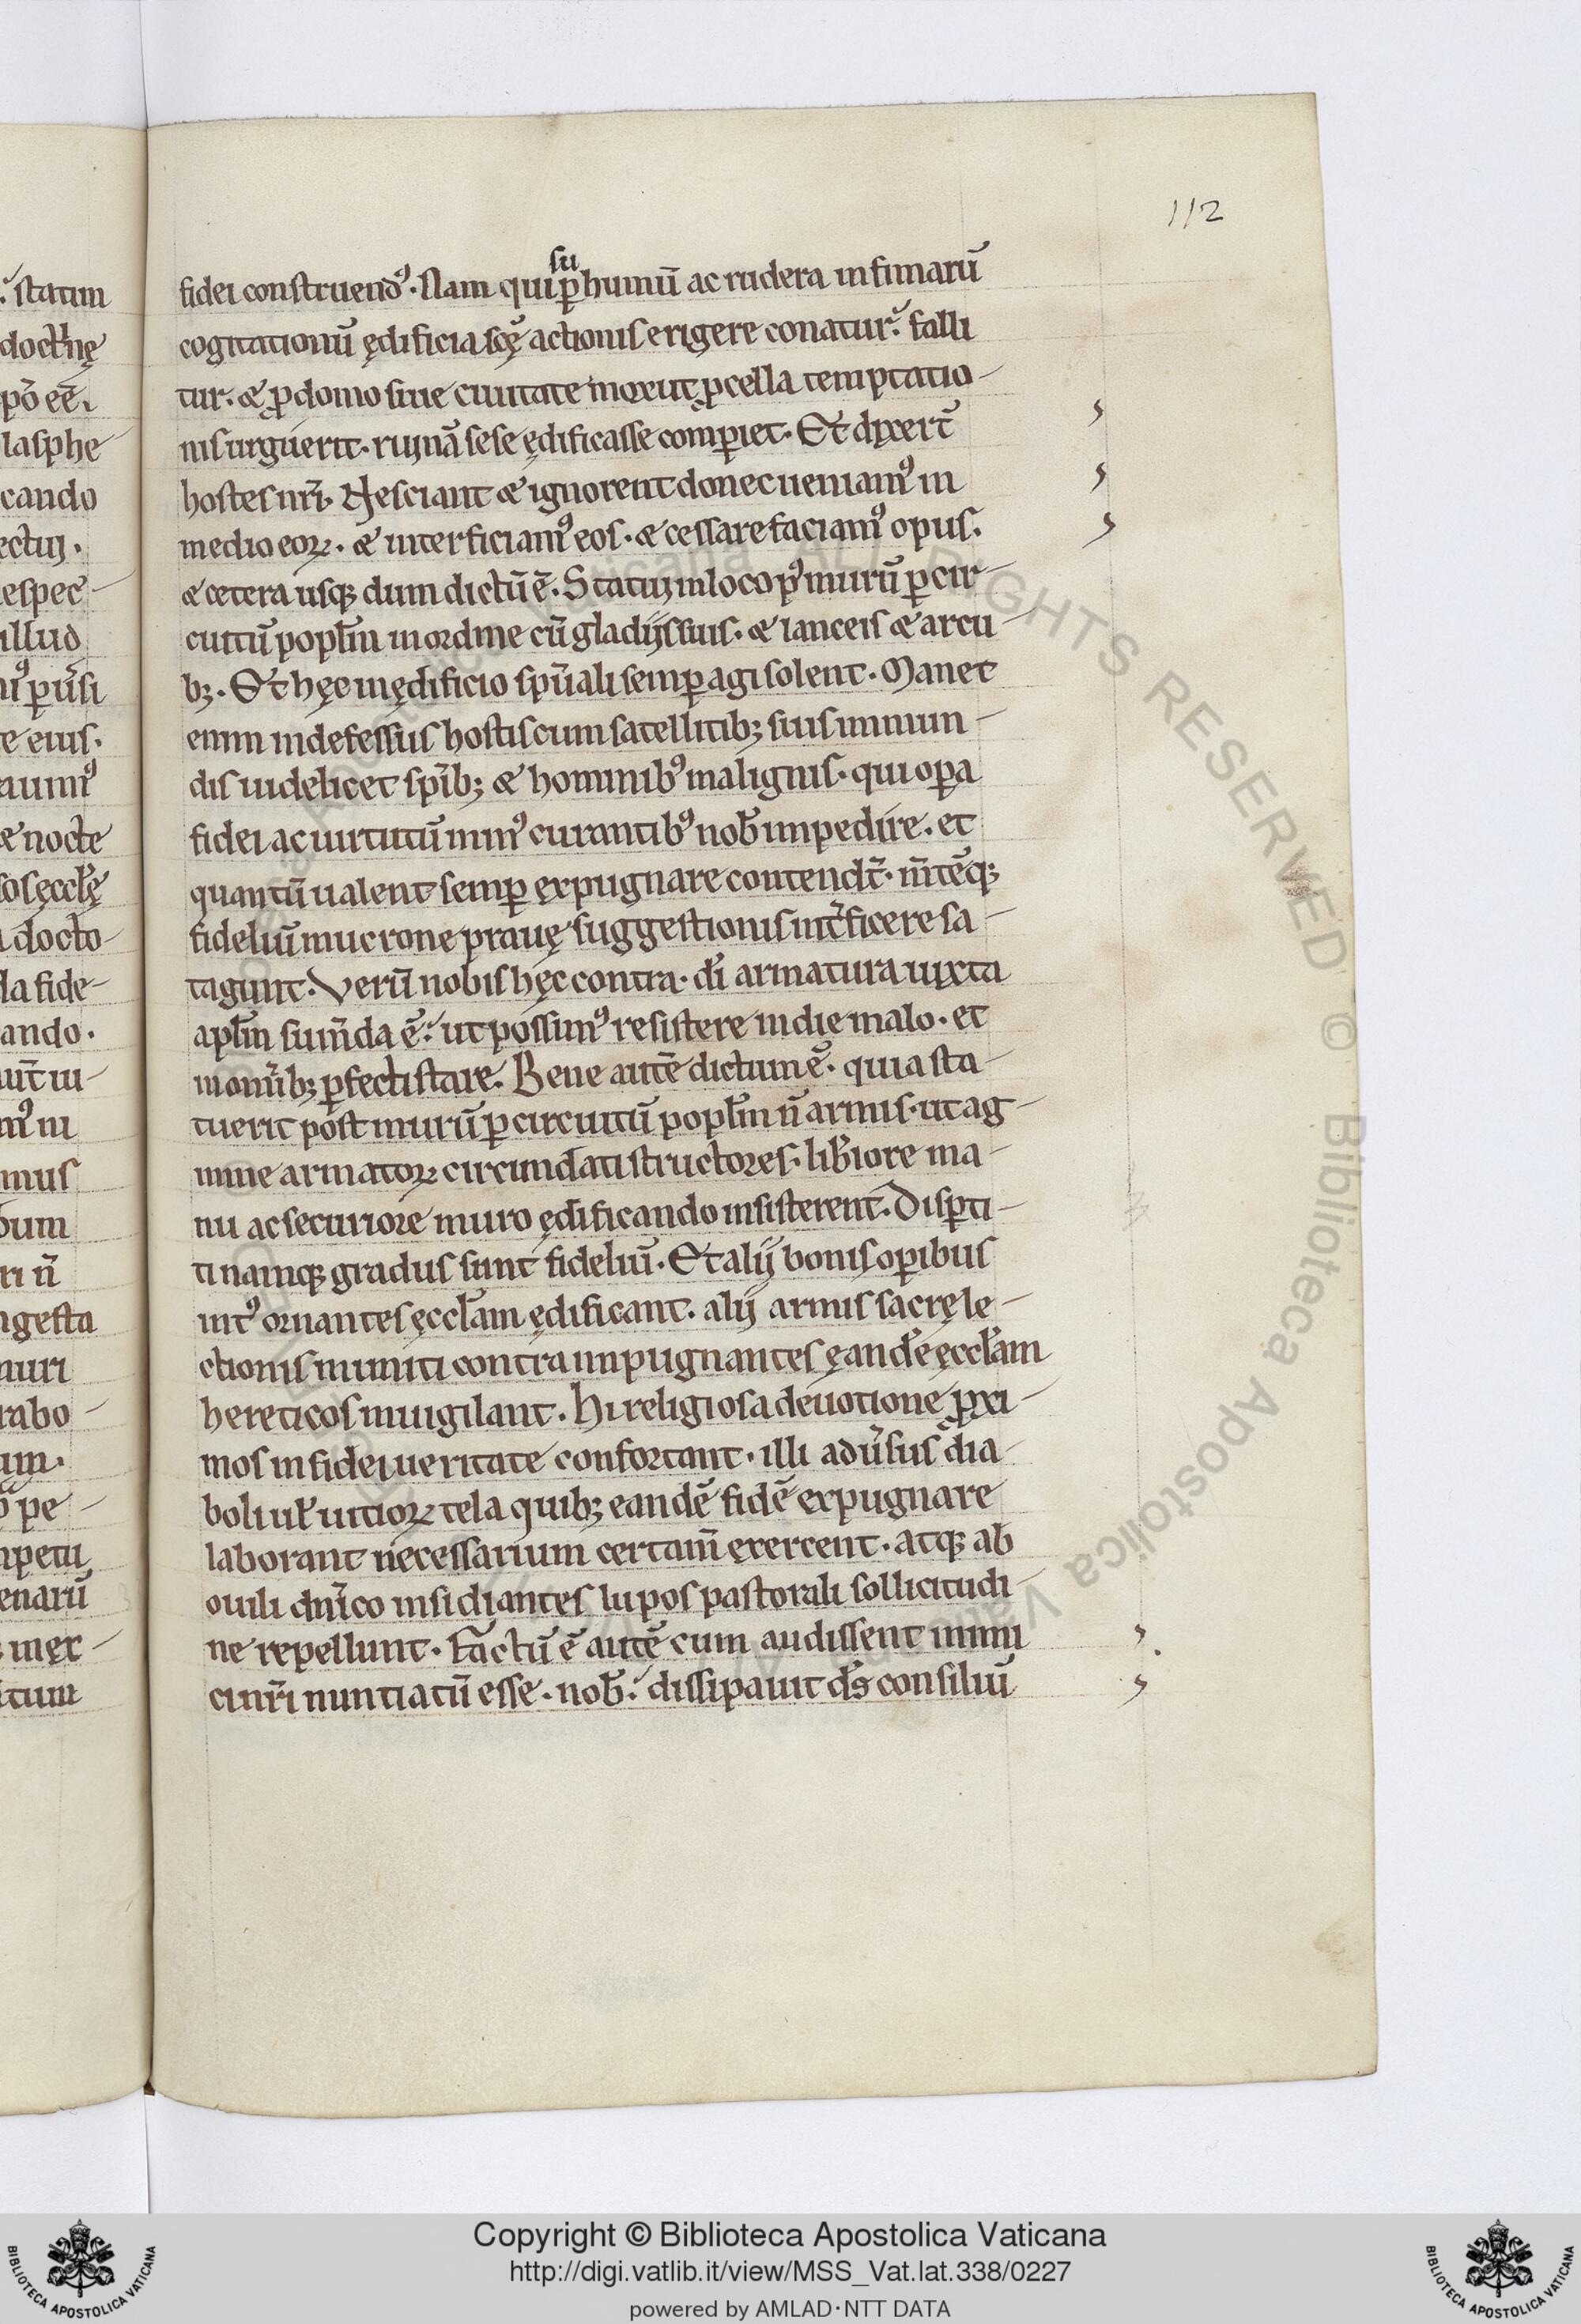 112
fidei construend᷒. Nam qui suꝑ humū ac rudera infimarū
cogitationū ędificia scę̄ actionis erigere conatur. falli
tur. & ꝓ domo siue ciuitate mox ut ꝓcella temptatio-
nis urguerit. ruinā sese ędificasse comꝑiet. Et dixert̄
hostes nr̄i. Nesciant & ignorent donec ueniam᷒ in
medio eoꝝ. & interficiam᷒ eos. & cessare faciam᷒ opus.
& cetera usqꝫ dum dictū ē. Statui in loco p᷒ murū ꝑ cir-
cuitū popl̄m in ordine cū gladijs suis. & lanceis & arcu-
bꝫ. Et hęc in ędificio spū̄ali semꝑ agi solent. Manet
enim indefessus hostis cum satellitibꝫ suis inmun-
dis uidelicet spībꝫ & hominib᷒ malignis. qui oꝑa
fidei ac uirtutū min᷒ curantib᷒ nob̄ impedire. et
quantū ualent semꝑ expugnare contendt̄. mt̄ēqꝫ
fideliū mucrone prauę suggestionis int̄ficere sa-
tagunt. Verū nobis hęc contra. dī armatura iuxta
apl̄m sum̄da ē. ut possim᷒ resistere in die malo. et
in omībꝫ ꝑfecti stare. Bene autē dictum ē. quia sta-
tuerit post murū ꝑ circuitū popl̄m ū armis. ut ag-
mine armatoꝝ circumdati structores. lib̄iore ma-
nu ac securiore muro ędificando insisterent. Disꝑti-
ti namqꝫ gradus sunt fideliū. Et alij bonis oꝑibus
int᷒ ornantes ęccl̄am ędificant. alij armis sacrę le-
ctionis muniti contra inpugnantes ęandē ęccl̄am
hereticos inuigilant. Hi religiosa deuotione ꝓxi-
mos in fidei ueritate confortant. illi adūsus dia-
boli ul̄ uitioꝝ tela quibꝫ eandē fidē expugnare
laborant necessarium certam̄ exercent. atqꝫ ab
ouili dnīco insidiantes lupos pastorali sollicitudi-
ne repellunt. Factū ē autē cum audissent inimi
ci nr̄i nuntiatū esse. nob̄. dissipauit ds̄ consiliū
Copyright © Biblioteca Apostolica Vaticana
http://digi.vatlib.it/view/MSS_Vat.lat.338/0227
powered by AMLAD·NTT DATA